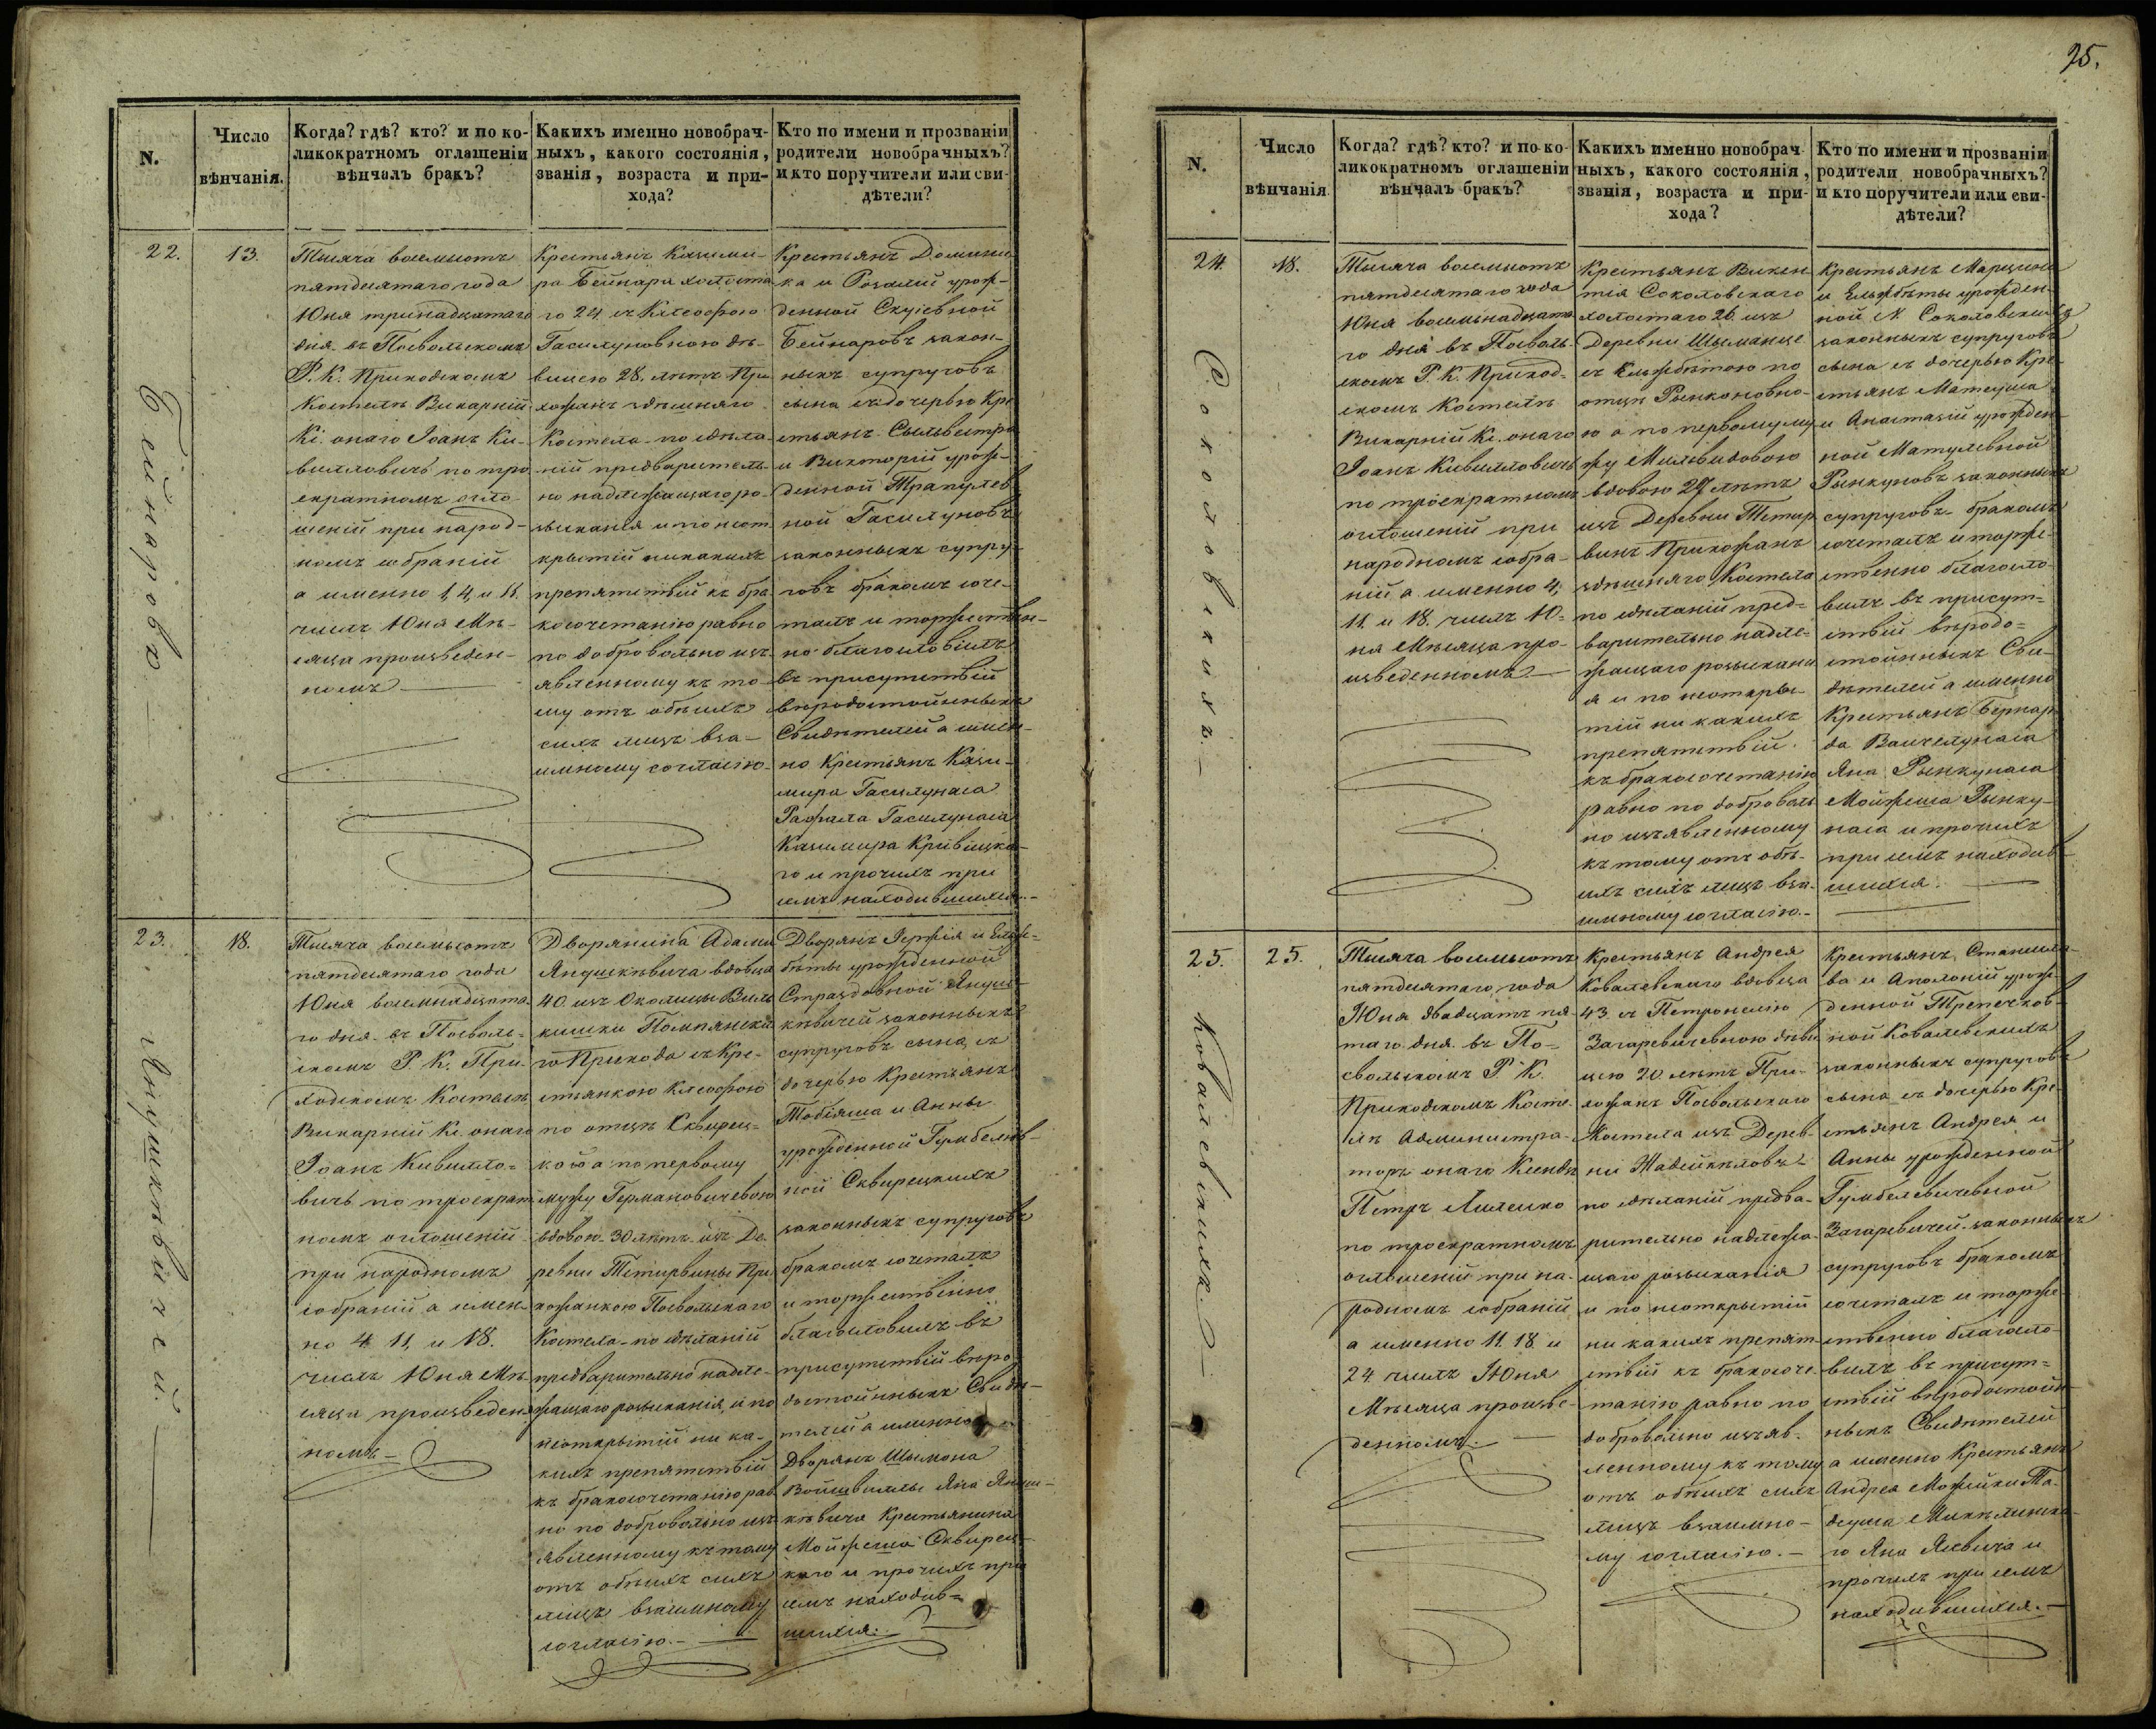 N.
Число
вѣнчанія.
Когда? гдѣ? кто? и по ко-
ликократномъ оглашеніи
вѣнчалъ бракъ?
Какихъ именно новобрач-
ныхъ, какого состоянія,
званія, возраста и при-
хода?
Кто по имени и прозваніи
родители новобрачныхъ?
и кто поручители или сви-
дѣтели?
22.
13.
Бейнаровъ
Тысяча восемьсотъ
пятдесятаго года
Юня тринадцатаго
дня въ Посвольскомъ
Р. К. Приходскомъ
Костелѣ Викарній
Кс. онаго Іоанъ Ки-
вилловичъ по тро
екратномъ огло-
шеній при народ-
номъ собраній
а именно 1, 4, и 11.
числъ Юня Мѣ-
сяца произведен-
номъ
Крестьянъ Казими-
ра Бейнара холоста
го 24. съ Клеофою
Гасилуновною дѣ-
вицею 28. лѣтъ При
хожанъ здѣшняго
Костела по сдѣла-
ній предваритель-
но надлежащаго ро-
зысканія и по неот
крытій никакихъ
препятствій къ бра
косочетанію равно
по добровольно изъ-
явленному къ то-
му отъ обѣихъ
сихъ лицъ вза-
имному согласію
Крестьянъ Домини
ка и Розалій урож-
денной Скуіевной
Бейнаровъ закон-
ныхъ супруговъ
сына съ дочерью Кре
стьянъ Сыльвестра
и Викторій урож-
денной Трапулев
ной Гасилуновъ
законныхъ супру-
говъ бракомъ соче-
талъ и торжествен-
но благословилъ
въ присутствій
вѣродостойныхъ
Свидѣтелей а имен-
но Крестьянъ Кази-
мира Гасилунаса
Рафала Гасилунаса
Казимира Кривицка-
го и прочихъ при
семъ находившихся.
23.
18.
Янушкѣвичей.
Тысяча восемьсотъ
пятдесятаго года
Юня восемнадцата
го дня въ Посволь-
скомъ Р. К. При-
ходскомъ Костелѣ
Викарній Кс. онаго
Іоанъ Кивилло-
вичъ по троекрат
номъ оглошеній
при народномъ
собраній а имен-
но 4 11, и 18.
числъ Юня Мѣ-
сяца произведен
номъ
Дворянина Адама
Янушкѣвича вдовца
40 изъ Околицы Виль
кишки Помпянска
го Прихода съ Кре-
стьянкою Клеофою
по отцѣ Сквирец-
кою а по первому
мужу Германовичевою
вдовою 30 лѣтъ изъ Де
ревни Тетирвины При
хожанкою Посвольскаго
Костела по сдѣланій
предварительно надле-
жащаго розысканія, и по
неоткрытій ни ка-
кихъ препятствій
къ бракосочетанію рав
но по добровольно изъ
явленному къ тому
отъ обѣихъ сихъ
лицъ взаимному
согласію.
Дворянъ Іержія и Ельж-
бѣты урожденной
Страздовной Януш-
кѣвичей законныхъ
супруговъ сына, съ
дочерью Крестьянъ
Тобіяша и Анны
урожденной Гумбелев-
ной Сквирецкихъ
законныхъ супруговъ
бракомъ сочеталъ
и торжественно
благословилъ въ
присутствій вѣро
достойныхъ Свидѣ-
телей а именно
Дворянъ Шымона
Войшвиллы Яна Януш-
кѣвича Крестьянина
Мойжеша Сквирец-
каго и прочихъ при
семъ находив-
шихся.
25.
N.
Число
вѣнчанія
Когда? гдѣ? кто? и по ко-
ликократномъ оглашеніи
вѣнчалъ бракъ?
Какихъ именно новобрач-
ныхъ, какого состоянія,
званія, возраста и при-
хода?
Кто по имени и прозваніи
родители новобрачныхъ?
и кто поручители или сви-
дѣтели?
24.
18.
Соколовскихъ.
Тысяча восемьсотъ
пятдесятаго года
Юня восемьнадцата
го дня въ Посволь-
скомъ Р. К. Приход-
скомъ Костелѣ
Викарній Кс. онаго
Іоанъ Кивилловичъ
по троекратномъ
оглошеній при
народномъ собра-
ній а именно 4,
11. и 18. числъ Ю-
ня Мѣсяца про-
изведенномъ.
Крестьянъ Викен
тія Соколовскаго
холостаго 26. изъ
Деревни Шыманце
съ Ельжбѣтою по
отцѣ Рынконовно-
ю а по первому му
жу Мильвидовою
вдовою 27 лѣтъ
изъ Деревни Тетир
винъ Прихожанъ
здѣшняго Костела
по сдѣланій пред-
варительно надле-
жащаго розыскані
я и по неоткры-
тій ни какихъ
препятствій
къ бракосочетанію
равно по доброволь
но изъявленному
къ тому отъ обѣ-
ихъ сихъ лицъ вза-
имному согласію.
Крестьянъ Марцина
и Ельжбѣты урожден-
ной N. Соколовскихъ
законныхъ супруговъ
сына съ дочерью Кре-
стьянъ Матеуша
и Анастазій урожден-
ной Матулевной
Рынкуновъ законныхъ
супруговъ бракомъ
сочеталъ и торже-
ственно благосло-
вилъ въ присут-
ствій вѣродо-
стойныхъ Сви-
дѣтелей а именно
Крестьянъ Бернар
да Вайчелунаса
Яна Рынкунаса
Мойжеша Рынку-
наса и прочихъ
при семъ находив-
шихся.
25.
25.
Ковалевскихъ.
Тысяча восемьсотъ
пятдесятаго года
Юня двадцать пя-
таго дня въ По-
свольскомъ Р. К.
Приходскомъ Косте-
лѣ Администра-
торъ онаго Ксендз
Петръ Лиленко
по троекратномъ
оглошеній при на-
родномъ собраній
а именно 11. 18 и
24 числъ Юня
Мѣсяца произве-
денномъ.
Крестьянъ Андрея
Ковалевскаго вдовца
43. съ Петронелію
Загаревичевною дѣви
цею 20. лѣтъ При-
хожанъ Посвольскаго
Костела изъ Дерев-
ни Жадейкеловъ
по сдѣланій предва-
рительно надлежа-
щаго розысканія
и по неоткрытій
ни какихъ препят-
ствій къ бракосоче-
танію равно по
добровольно изъяв-
ленному къ тому
отъ обѣихъ сихъ
лицъ взаимно-
му согласію.
Крестьянъ Станисла-
ва и Аполоній урож-
денной Трепечков-
ной Ковалевскихъ
законныхъ супруговъ
сына съ дочерью Кре-
стьянъ Андрея и
Анны урожденной
Гумбелевичевной
Загаревичей законныхъ
супруговъ бракомъ
сочеталъ и торже-
ственно благосло-
вилъ въ присут-
ствій вѣродостой-
ныхъ Свидѣтелей
а именно Крестьянъ
Андрея Можейки Та-
деуша Микѣлинска-
го Яна Ясевича и
прочихъ при семъ
находившихся.